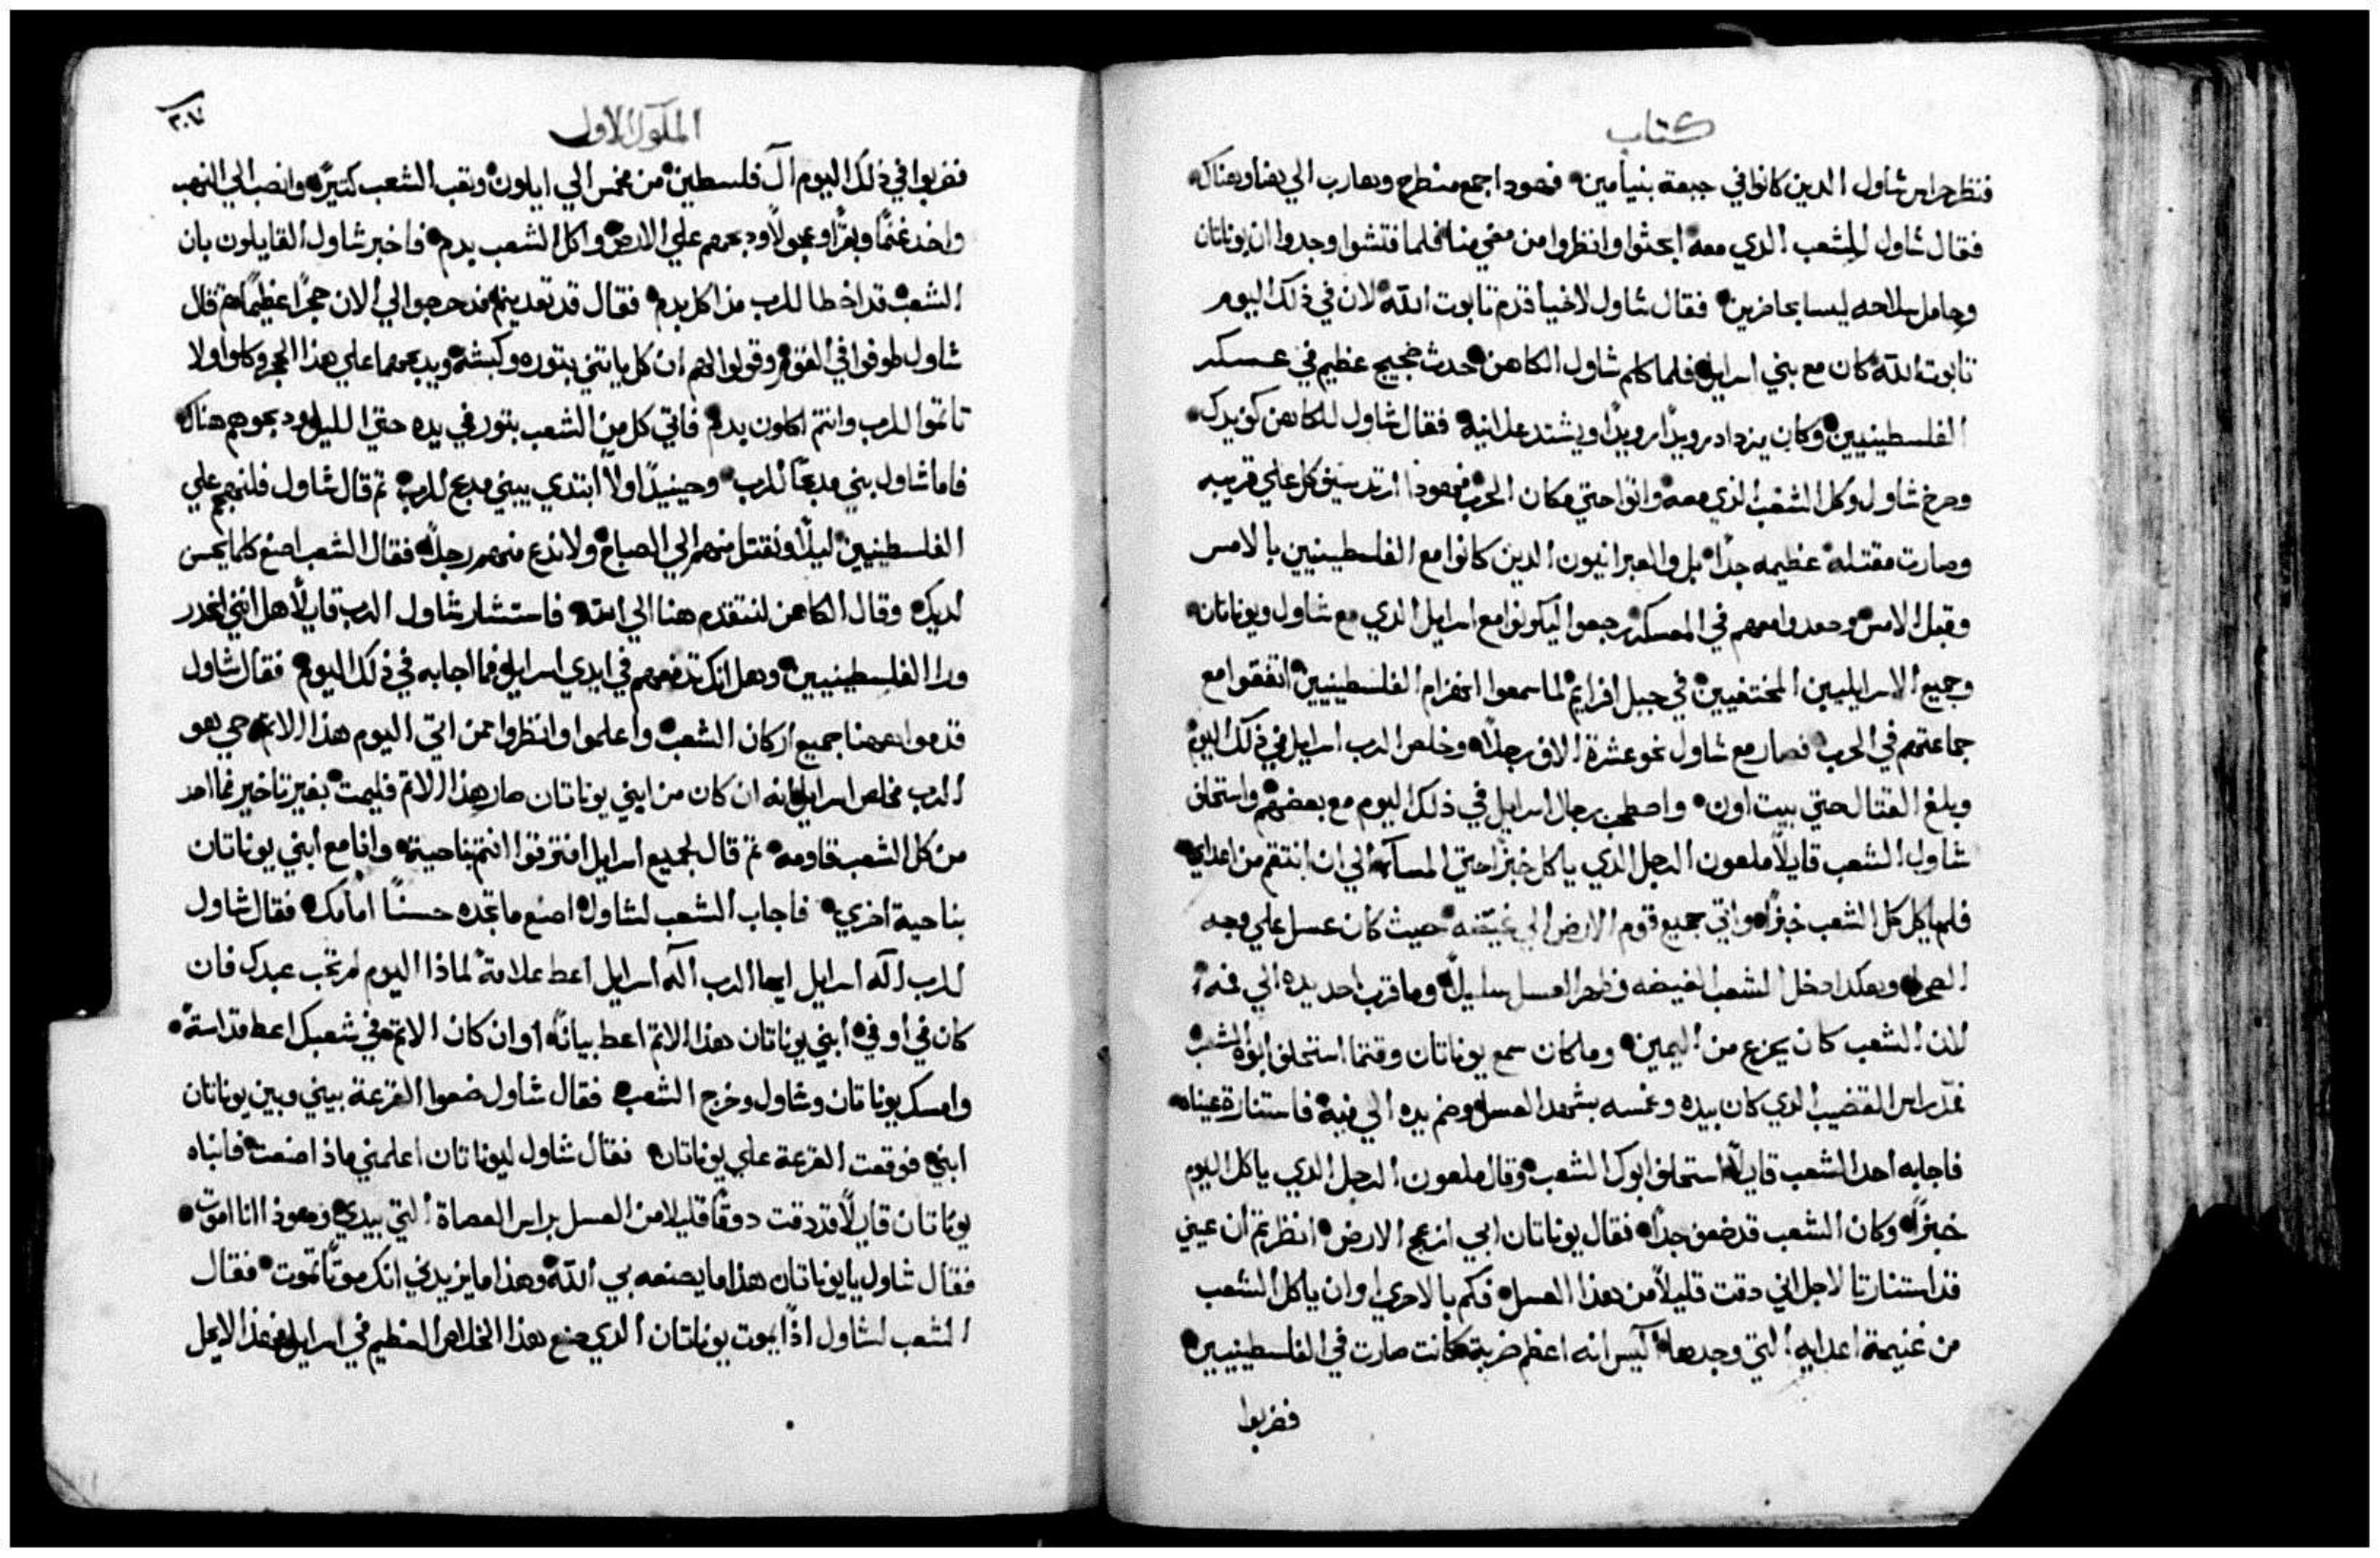 كتاب
فنظر حراس شاول الدين كانوا في جبعة بنيامين فهودا جمع منطرح وهارب الي هنا وهناك
فقال شاول للشعب الدي معه ابحثوا وانظروا من مضي منا فلما فتشوا وجدوا ان يوناتان
وحامل سلاحه ليسا بحاضرين فقال شاول لاخيا قدم تابوت الله لان في ذلك اليوم
تابوت الله كان مع بني اسرايل فلما كلم شاول الكاهن حدث ضجيج عظيم في عسكر
الفلسطينيين وكان يزداد رويدا رويدا ويشتد علانية فقال شاول للكاهن كف يدك
وصرخ شاول وكل الشعب الذي معه واتوا حتي مكان الحرب فهودا ارتد سيف كل علي قريبه
وصارت مقتلة عظيمه جدا بل والعبرانيون الدين كانوا مع الفلسطينيين بالامس
وقبل الامس وصعدوا معهم في المعسكر رجعوا ليكونوا مع اسرايل الدي مع شاول ويوناتان
وجميع الاسرايليين المختفيين في جبل افرايم لما سمعوا انهزام الفلسطينيين اتفقوا مع
جماعتهم في الحرب فصار مع شاول نحو عشرة الاف رجلا وخلص الرب اسرايل في ذلك اليوم
وبلغ القتال حتي بيت اون واصطحب رجال اسرايل في ذلك اليوم مع بعضهم واستحلف
شاول الشعب قايلا ملعون الرجل الدي ياكل خبزا حتي المسآء الي ان انتقم من اعداي
فلم ياكل كل الشعب خبزا واتي جميع قوم الارض الي غيضه حيث كان عسل علي وجه
الصحرا وهكدا دخل الشعب الغيضه وظهر العسل سليلا وما قرب احد يده الي فمه
لان الشعب كان يجزع من اليمين وما كان سمع يوناتان وقتما استحلف ابوه الشعب
فمد راس القضيب الدي كان بيده وغمسه بشهد العسل وضم يده الي فيه فاستنارة عيناه
فاجابه احد الشعب قايلا استحلف ابوك الشعب وقال ملعون الرجل الدي ياكل اليوم
خبزا وكان الشعب قد ضعف جدا فقال يوناتان ابي ازعج الارض انظرتم ان عيني
قد استنارتا لاجل اني دقت قليلا من هذا العسل فكم بالاحري اوان ياكل الشعب
من غنيمة اعدايه التي وجدها آليس انه اعظم ضربة كانت صارت في الفلسطينيين
فضربوا
الملوك الاول
فضربوا في ذلك اليوم آل فلسطين من مخمس الي ايلون وتعب الشعب كتيرا وانصب الي النهب
واخد غنما وبقرا وعجولا ودبحهم علي الارض واكل الشعب بدم فاخبر شاول القايلون بان
الشعب قد اخطا للرب مذ اكل بدم فقال قد تعديتم فدحرجوا الي الان حجرا عظيما تم قال
شاول طوفوا في القوم وقولوا لهم ان كل ياتني بتوره وكبشه ويدبحهما علي هذا الحجر وكلوا ولا
تاتموا للرب وانتم اكلون بدم فاتي كل من الشعب بتور في يده حتي الليل ودبحوهم هناك
فاما شاول بني مدبحا للرب وحينيدا اولا ابتدي يبني مدبح للرب تم قال شاول فلنهجم علي
الفلسطينيين ليلا ونقتل منهم الي الصباح ولا ندع منهم رجلا فقال الشعب اصنع كلما يحسن
لديك وقال الكاهن لنتقدم هنا الي الله فاستشار شاول الرب قايلا هل انني انحدر
ورا الفلسطينيين وهل انك تدفعهم في ايدي اسرايل فما اجابه في ذلك اليوم فقال شاول
قدموا ههنا جميع اركان الشعب واعلموا وانظروا ممن اتي اليوم هذا الاتم حي هو
الرب مخلص اسرايل انه ان كان من ابني يوناتان صار هذا الاتم فليمت بغير تاخير فما احد
من كل الشعب قاومه تم قال لجميع اسرايل افترقوا انتم بناحية وانا مع ابني يوناتان
بناحية اخري فاجاب الشعب لشاول اصنع ما تجده حسنا امامك فقال شاول
للرب اله اسرايل ايها الرب اله اسرايل اعط علامة لماذا اليوم لم تجب عبدك فان
كان في او في ابني يوناتان هذا الاتم اعط بيانا اوان كان الاتم في شعبك اعط قداسة
وامسك يوناتان وشاول وخرج الشعب فقال شاول ضعوا القرعة بيني وبين يوناتان
ابني فوقعت القرعة علي يوناتان فقال شاول ليوناتان اعلمني ماذا صنعت فانباه
يوناتان قايلا قد دقت دوقا قليلا من العسل براس العصاة التي بيدي وهودا انا اموت
فقال شاول يا يوناتان هذا ما يصنعه بي الله وهذا ما يزيدني انك موتا تموت فقال
الشعب لشاول اذا يموت يوناتان الدي صنع هذا الخلاص العظيم في اسرايل فهذا لا يحل